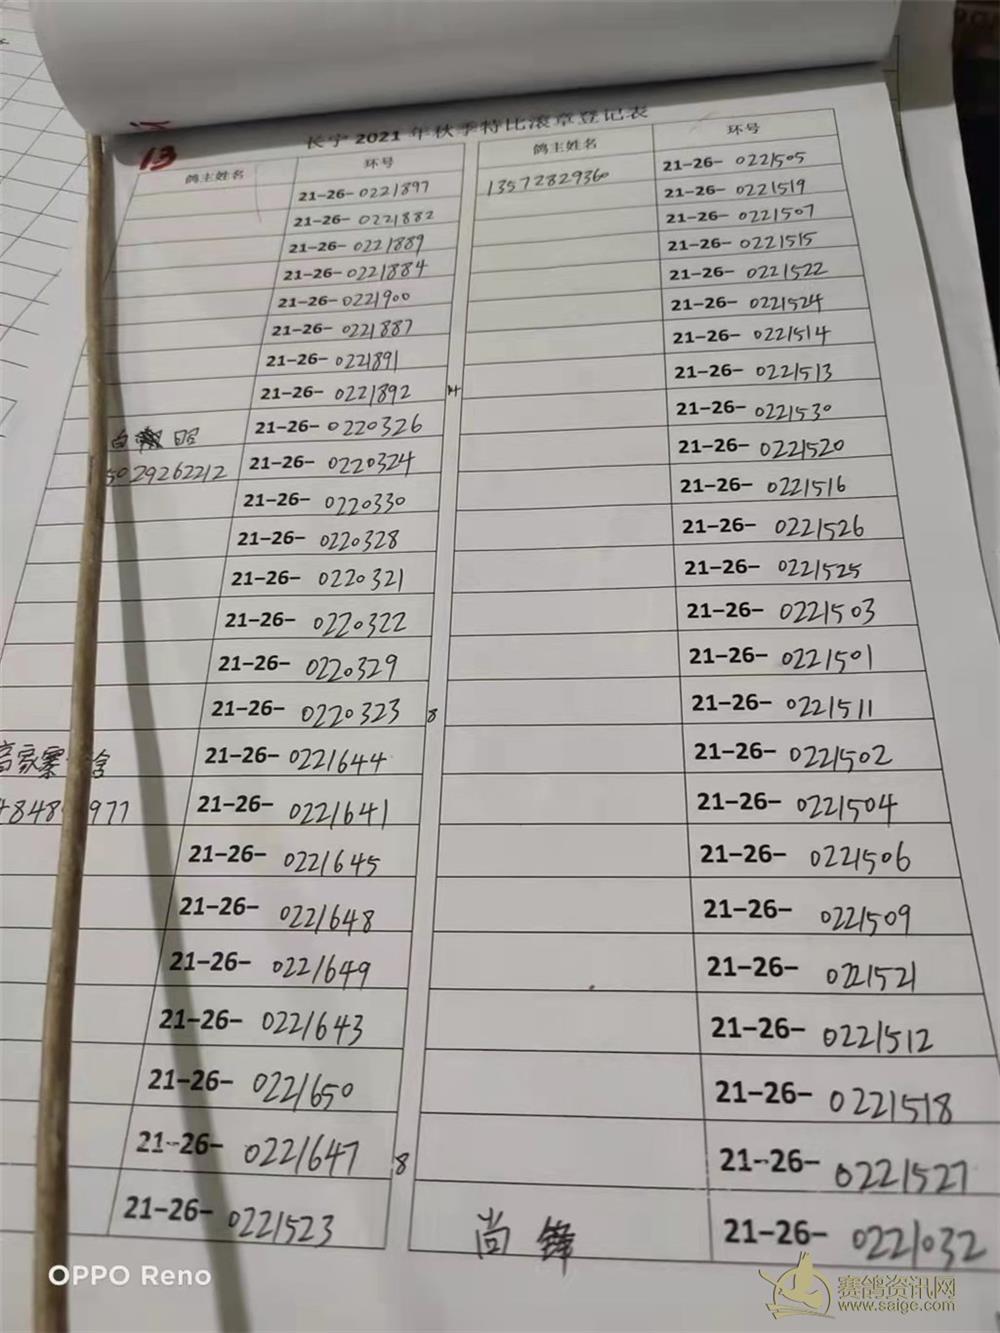 13
长宁2021年秋季特比滚章登记表
鸽主姓名 环号
21-26-0221897
21-26-0221882
21-26-0221889
21-26-0221884
21-26-0221900
21-26-0221887
21-26-0221891
21-26-0221892
21-26-0220326
5029262212 21-26-0220324
21-26-0220330
21-26-0220328
21-26-0220321
21-26-0220322
21-26-0220329
21-26-0220323 8
家寨 21-26-0221644
21-26-0221641
21-26-0221645
21-26-0221648
21-26-0221649
21-26-0221643
21-26-0221650
21-26-0221647 8
21-26-0221523
鸽主姓名 环号
13572829360 21-26-0221505
21-26-0221519
21-26-0221507
21-26-0221515
21-26-0221522
21-26-0221524
21-26-0221514
21-26-0221513
21-26-0221530
21-26-0221520
21-26-0221516
21-26-0221526
21-26-0221525
21-26-0221503
21-26-0221501
21-26-0221511
21-26-0221502
21-26-0221504
21-26-0221506
21-26-0221509
21-26-0221521
21-26-0221512
21-26-0221518
21-26-0221527
尚锋 21-26-0221032
OPPO Reno
赛鸽资讯网
www.saige.com